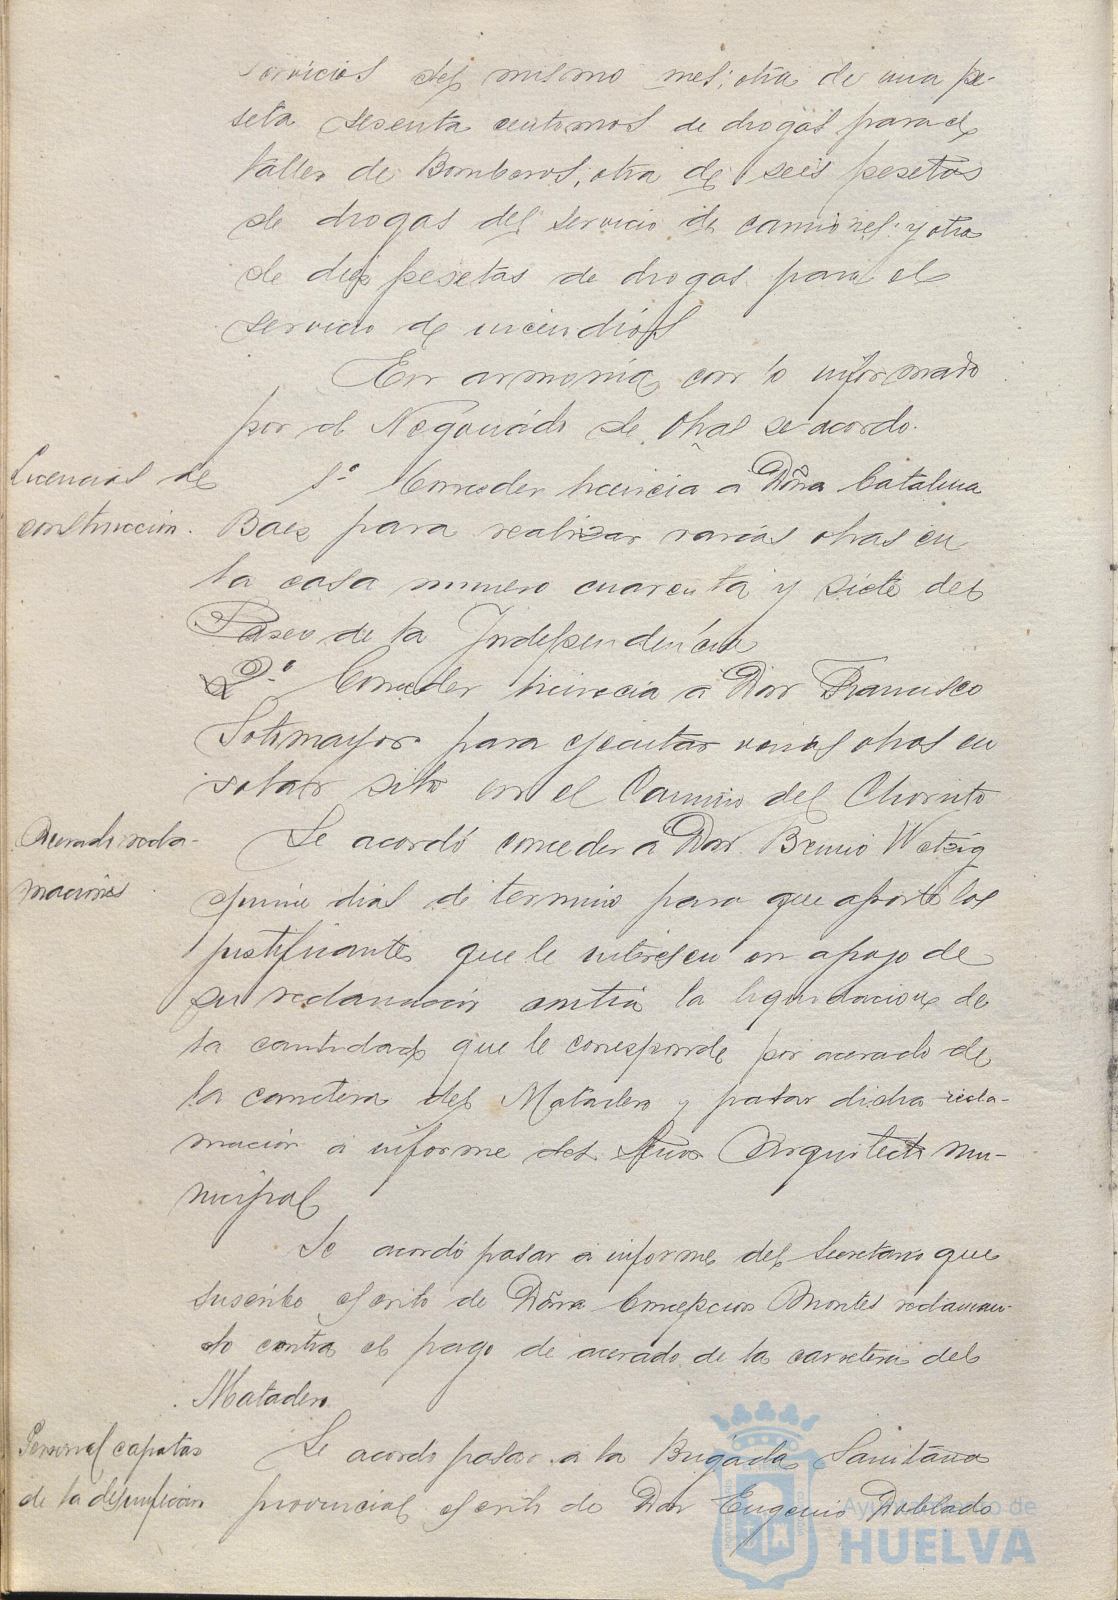 servicios del mismo mes; otra de una pe-
seta sesenta centimos de drogas para el
taller de Bomberos; otra de seis pesetas
de drogas del servicio de camiones: y otra
de diez pesetas de drogas para el
servicio de incendios
En armonia con lo informado
por el Negociado de Obras se acordo.
Licencias de
construcción.
1º Conceder licencia a Doña Catalina
Baez para realizar varias obras en
la casa numero cuarenta y siete del
Paseo de la Independencia
2.º Conceder licencia a Don Francisco
Sotomayor para ejecutar varias obras en
solar sito en el Camino del Chorrito
Acerado recla-
maciones
Se acordó conceder a Don Bruno Wetzig
quince dias de termino para que aporte los
justificantes que le interesen en apoyo de
su reclamación contra la liquidacion de
la cantidad que le corresponde por acerado de
la carretera del Matadero y pasar dicha recla-
mación a informe del Arquitecto mu-
nicipal
Se acordó pasar a informe del Secretario que
suscribe escrito de Doña Concepcion Montes reclaman-
do contra el pago de acerado de la carretera del
Matadero
Personal capataz
de la desinfeccion
Se acordo pasar a la Brigada Sanitaria
provincial escrito de Don Eugenio Doblado
Ayuntamiento de
HUELVA